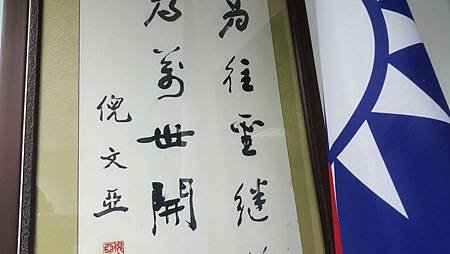 為往聖継
為萬世開
倪文亞